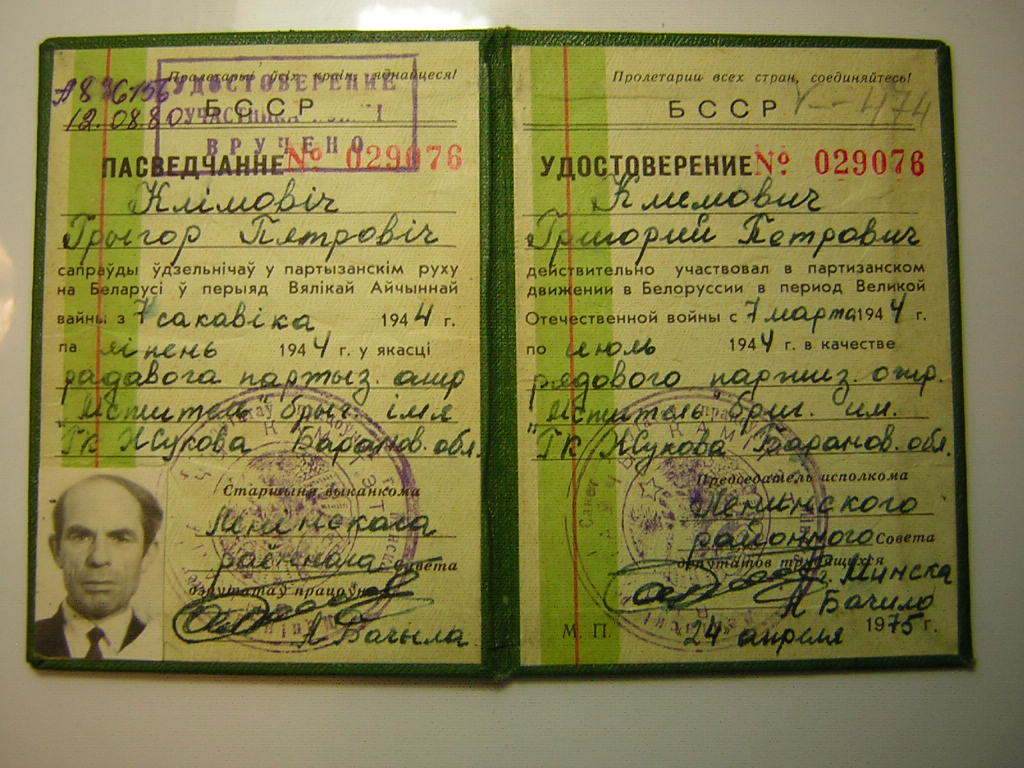 Пралетарыі ўсіх краін, яднайцеся!
УДОСТОВЕРЕНИЕ
А 8
12.08.80
БССР
ВРУЧЕНО
ПАСВЕДЧАННЕ № 029076
Клімовіч
Грыгор Пятровіч
сапраўды ўдзельнічаў у партызанскім руху
на Беларусі ў перыяд Вялікай Айчыннай
вайны з 7 сакавіка 1944 г.
па ліпень 1944 г. у якасці
радавога партыз. атр
"Мститель" брыг. імя
"ГК Жукова Баранов. обл.
Старшыня выканкома
Ленинскага
раённага Савета
дэпутатаў працоўных
А Бачыла
Пролетарии всех стран, соединяйтесь!
БССР
V-474
УДОСТОВЕРЕНИЕ № 029076
Климович
Григорий Петрович
действительно участвовал в партизанском
движении в Белоруссии в период Великой
Отечественной войны с 7 марта 1944 г.
по июль 1944 г. в качестве
рядового партиз. отр.
"Мститель" бриг. им.
"ГК Жукова Баранов. обл.
Председатель исполкома
Ленинского
районного Совета
депутатов трудящихся
г. Минска
А Бачило
М. П. 24 апреля 1975 г.